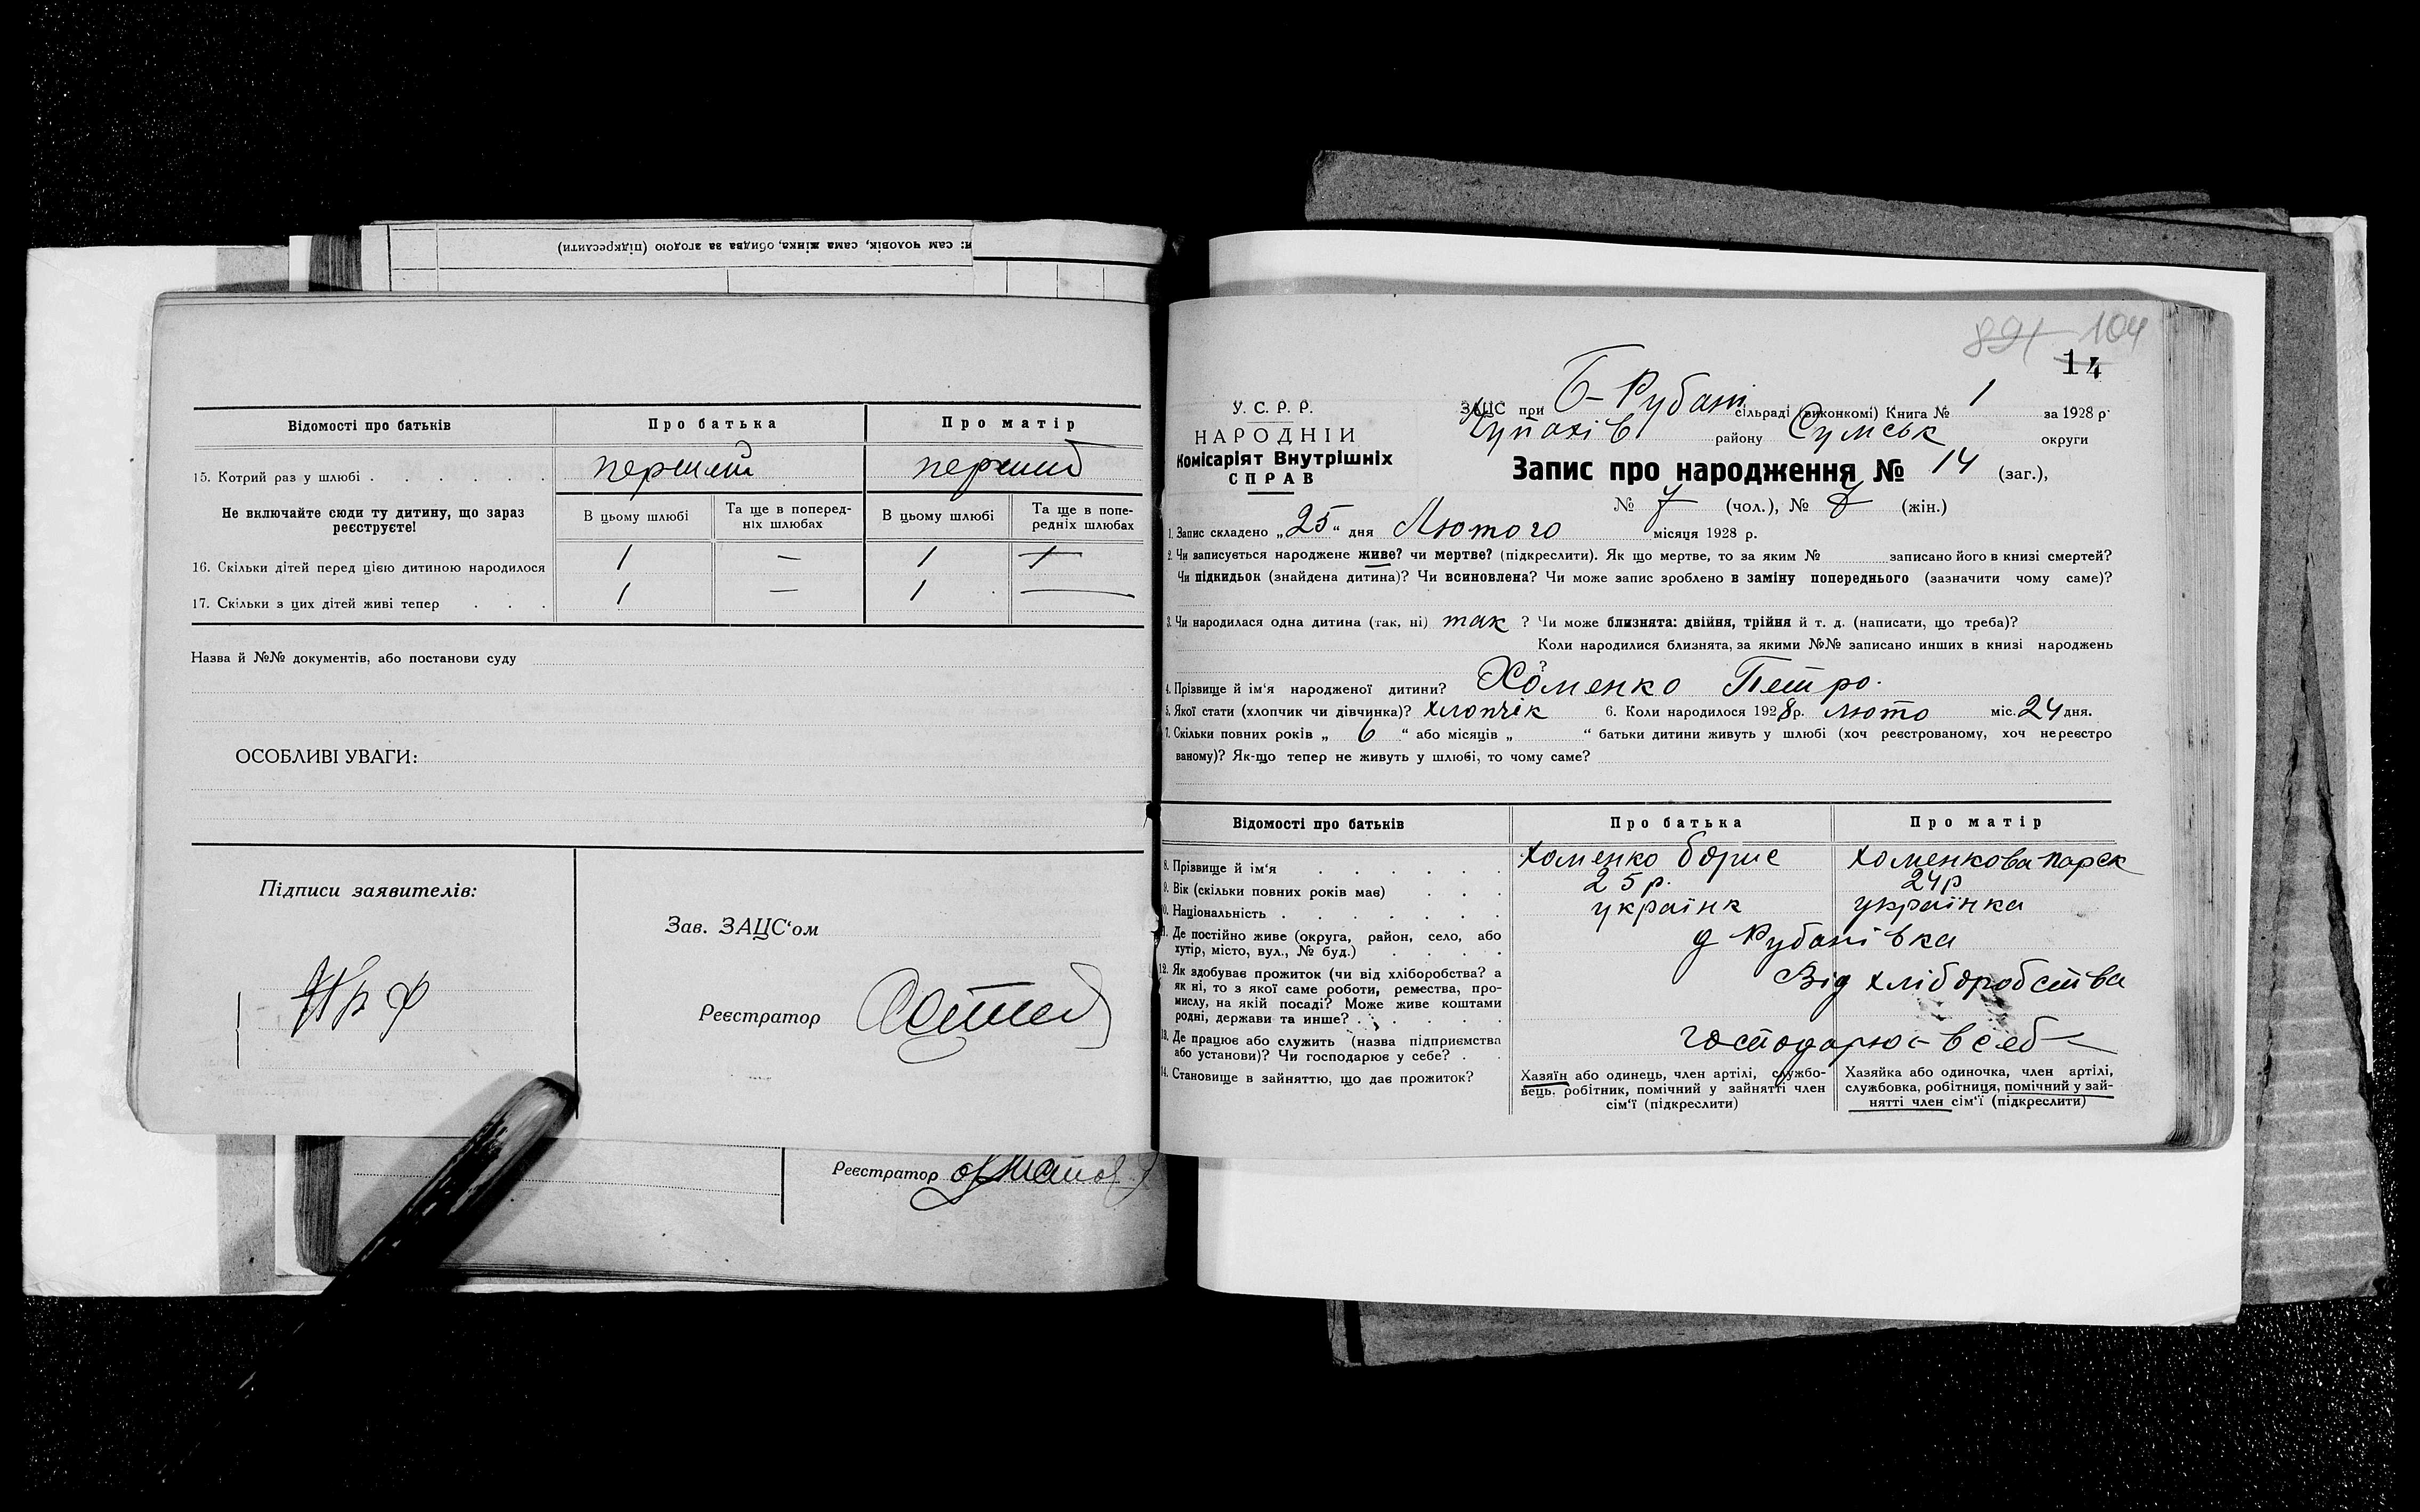 и: сам чоловік, сама жінка, обидва за згодою (підкреслити)
Відомості про батьків
Про батька
Про матір
15. Котрий раз у шлюбі
перший
перший
Не включайте сюди ту дитину, що зараз реєструєте!
В цьому шлюбі
Та ще в поперед-
ніх шлюбах
В цьому шлюбі
Та ще в попе-
редніх шлюбах
16. Скільки дітей перед цією дитиною народилося
1 — 1 —
17. Скільки з цих дітей живі тепер
1 — 1 —
Назва й №№ документів, або постанови суду
ОСОБЛИВІ УВАГИ:
Підписи заявителів:
Зав. ЗАЦС‘ом
Реєстратор
Реєстратор
891 104
14
У. С. Р. Р.
НАРОДНІЙ
Комісаріят Внутрішніх
СПРАВ
ЗАЦС при Б-Рубані сільраді (виконкомі) Книга № 1 за 1928 р.
Чупахів району Сумськ округи
Запис про народження № 14 (заг.),
№ 7 (чол.), № 7 (жін.)
1. Запис складено „25“ дня Лютого місяця 1928 р.
2. Чи записується народжене живе? чи мертве? (підкреслити). Як що мертве, то за яким № записано його в книзі смертей?
Чи підкидьок (знайдена дитина)? Чи всиновлена? Чи може запис зроблено в заміну попереднього (зазначити чому саме)?
3. Чи народилася одна дитина (так, ні) так ? Чи може близнята: двійня, трійня й т. д. (написати, що треба)?
Коли народилися близнята, за якими №№ записано инших в книзі народжень
?
4. Прізвище й ім‘я народженої дитини? Хоменко Петро.
5. Якої стати (хлопчик чи дівчинка)? хлопчік 6. Коли народилося 1928р. люто міс. 24 дня.
7. Скільки повних років „ 6 “ або місяців „ “ батьки дитини живуть у шлюбі (хоч реєстрованому, хоч нереєстро
ваному)? Як-що тепер не живуть у шлюбі, то чому саме?
Відомості про батьків
Про батька
Про матір
8. Прізвище й ім‘я
Хоменко борис
Хоменкова парск
9. Вік (скільки повних років має)
25р.
24р
10. Національність
українк
українка
11. Де постійно живе (округа, район, село, або
хутір, місто, вул., № буд.)
д Рубанівка
12. Як здобуває прожиток (чи від хліборобства? а
як ні, то з якої саме роботи, ремества, про-
мислу, на якій посаді? Може живе коштами
родні, держави та инше?
Від хліборобства
13. Де працює або служить (назва підприємства
або установи)? Чи господарює у себе?
14. Становище в зайняттю, що дає прожиток?
Хазяїн або одинець, член артілі, службо-
вець, робітник, помічний у зайнятті член
сім‘ї (підкреслити)
Хазяйка або одиночка, член артілі,
службовка, робітниця, помічний у зай-
нятті член сім‘ї (підкреслити)